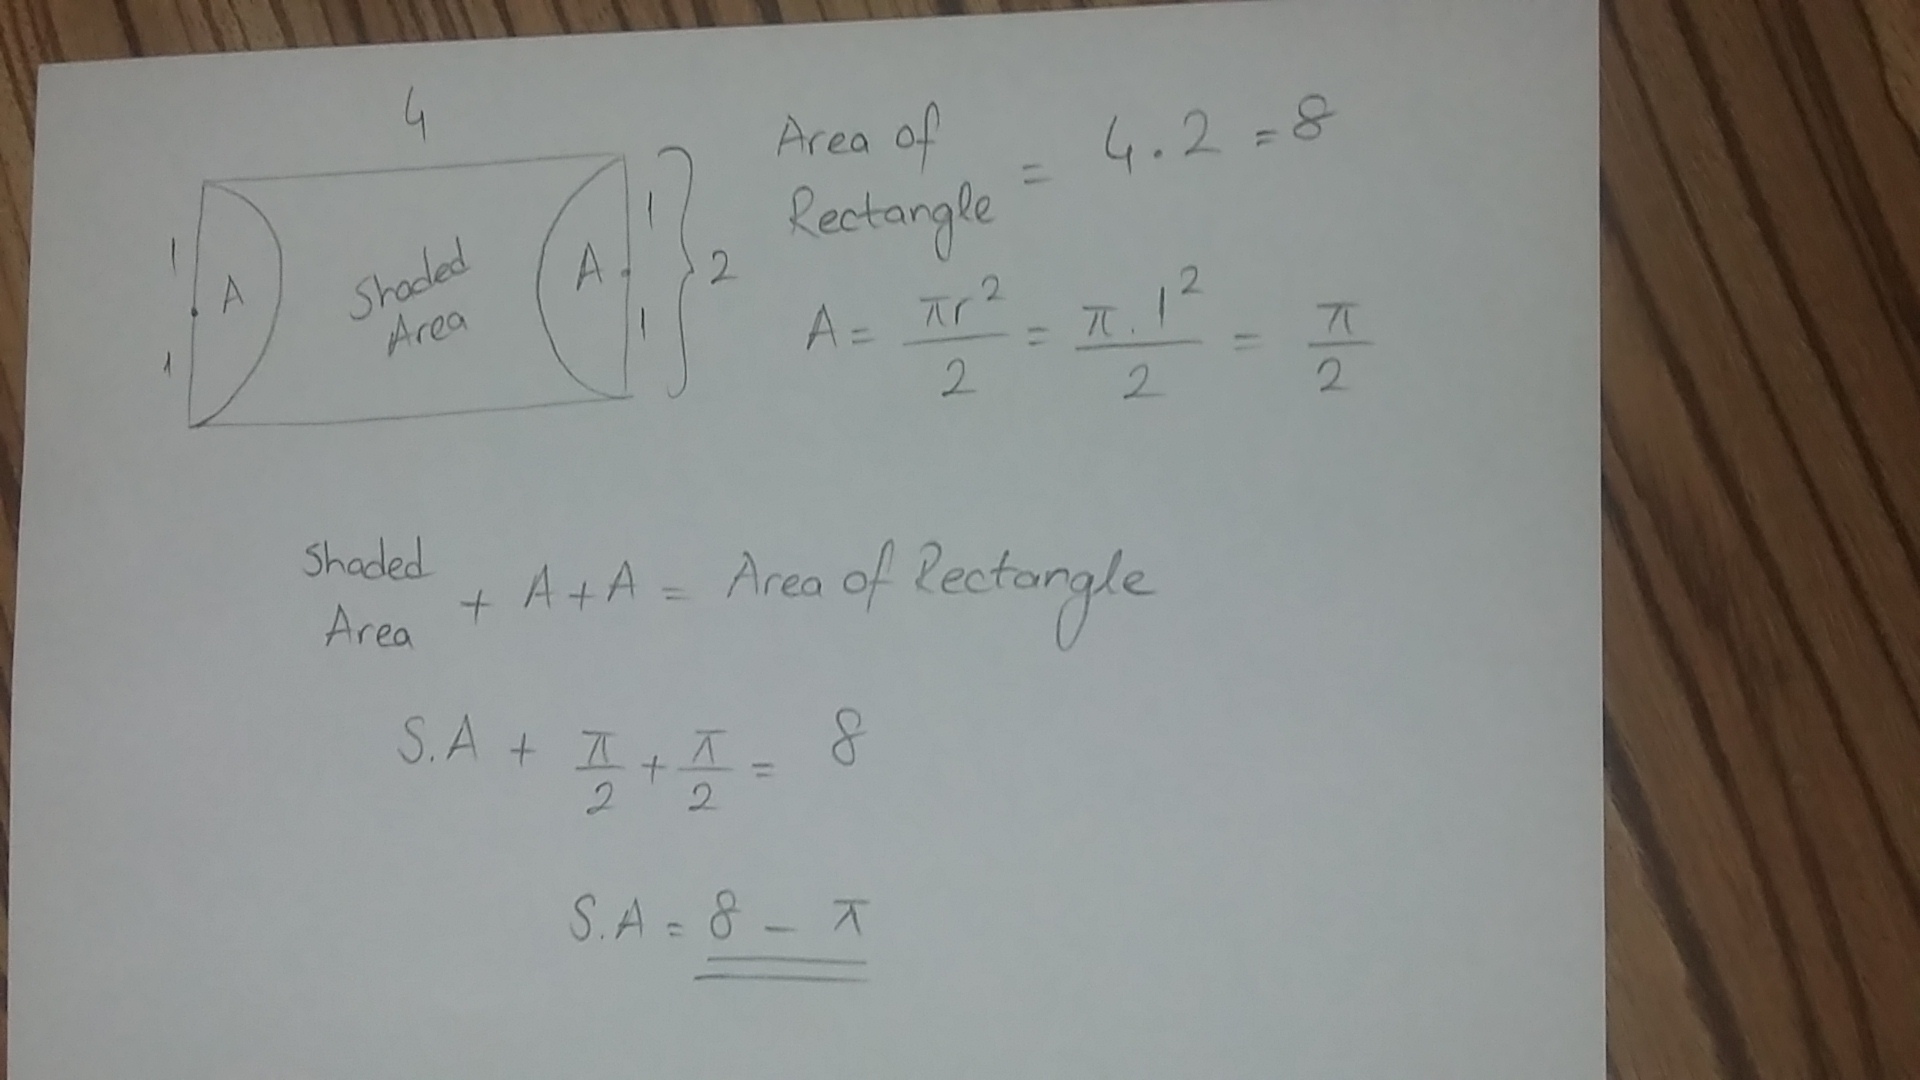 4
1
A
1
Shaded
Area
A
1
1
2
Area of
Rectangle = 4.2 = 8
A = πr²/2 = π.1²/2 = π/2
Shaded
Area + A + A = Area of Rectangle
S.A + π/2 + π/2 = 8
S.A = 8 - π